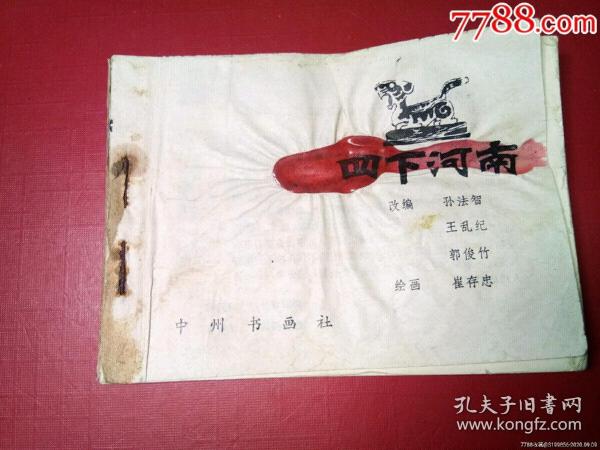 7788.com
四下河南
改编 孙法智
王乱纪
郭俊竹
绘画 崔存忠
中州书画社
孔夫子旧书网
www.kongfz.com